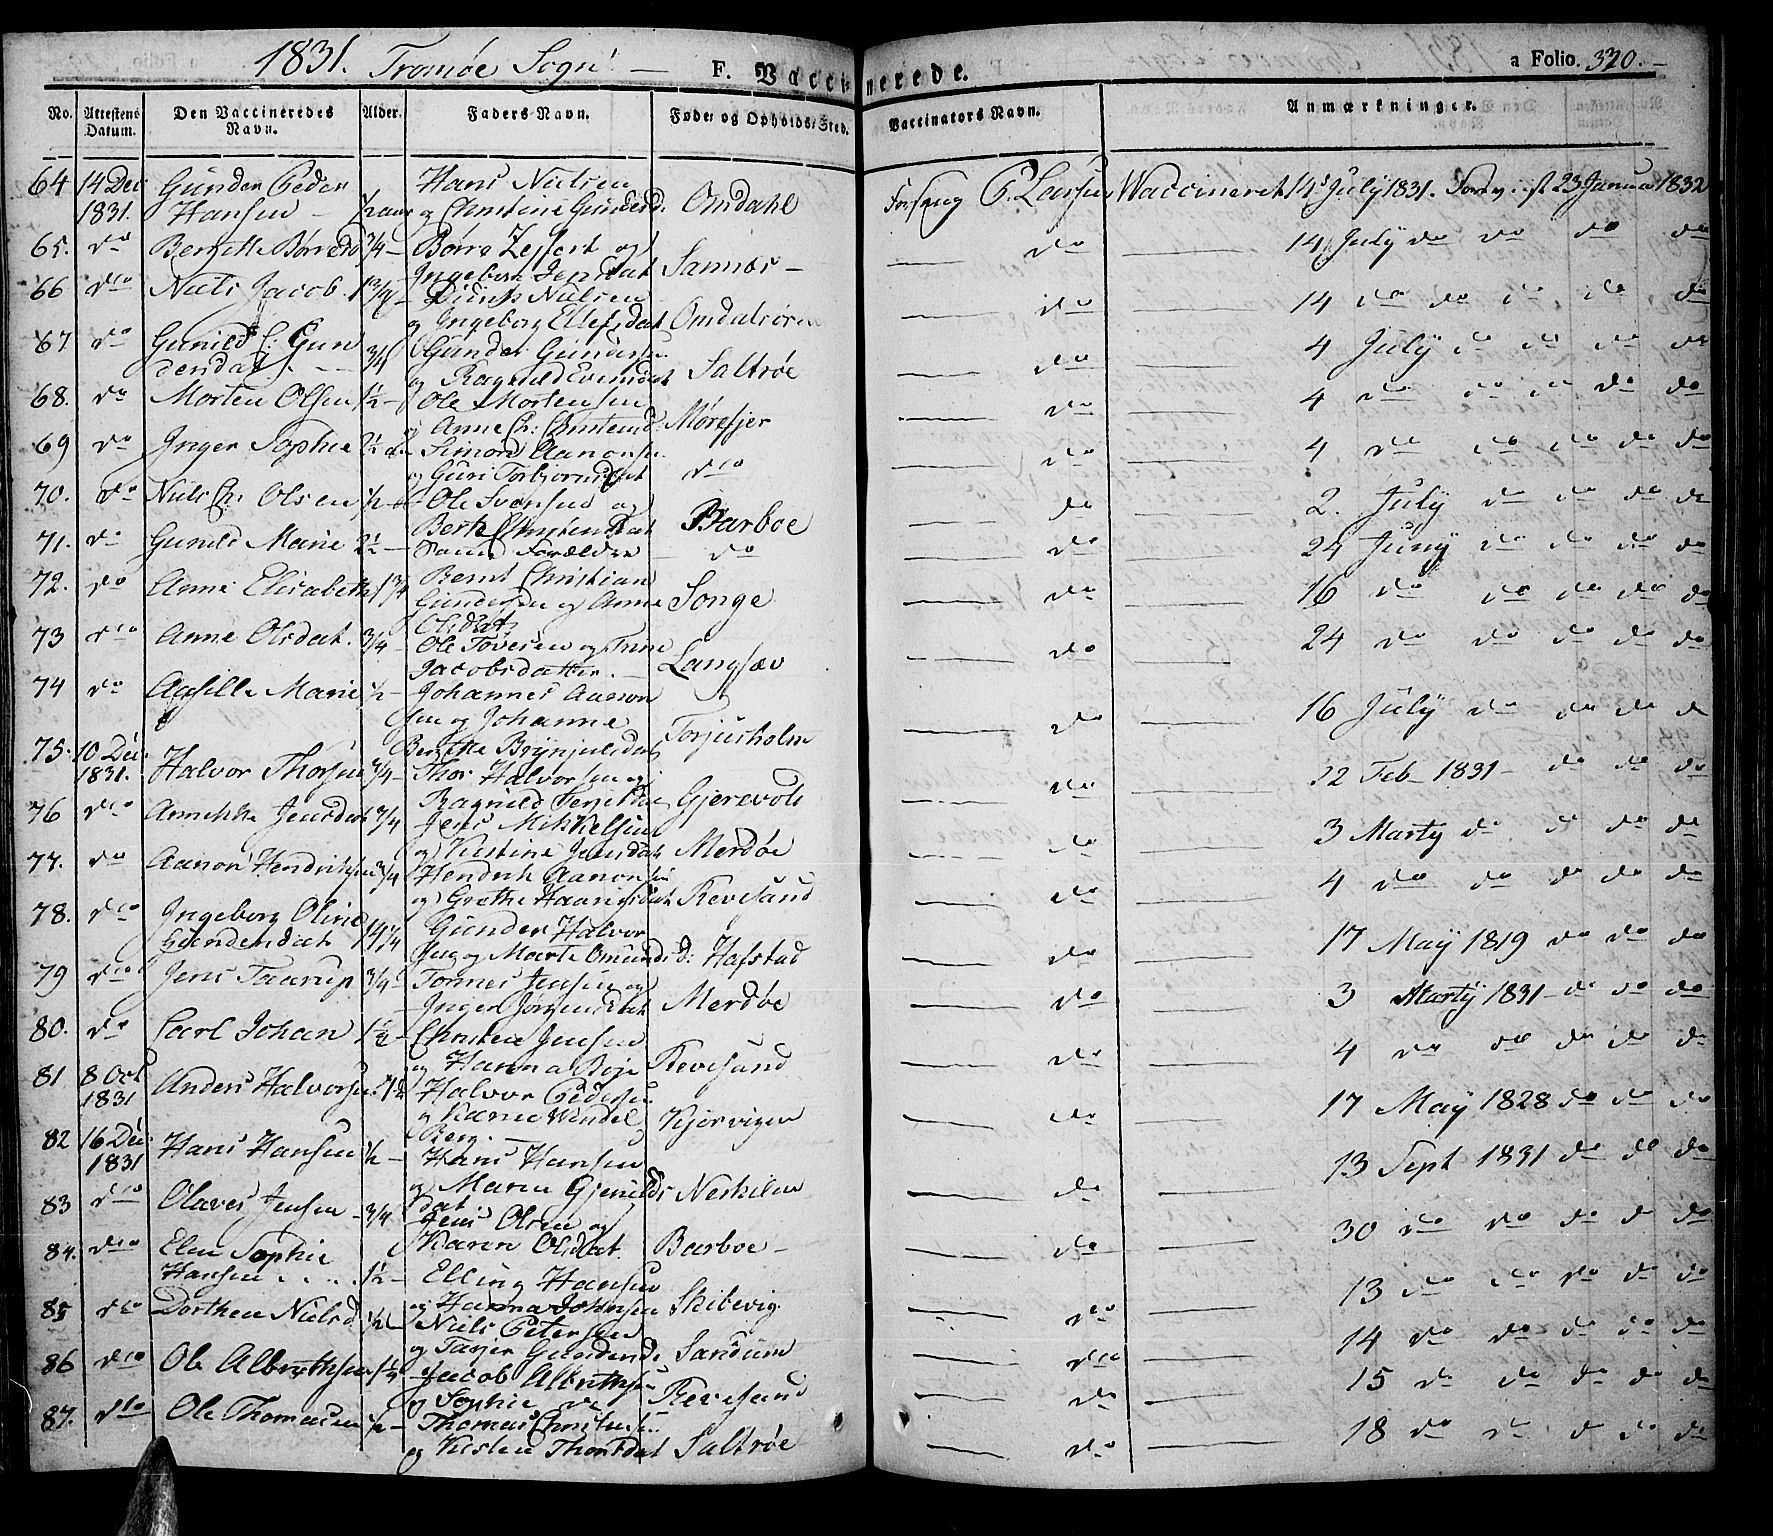 1831. Tromøe Sogn —
F. Vaccinerede.
a Folio. 320.
No. Attestens Datum. Den Vaccineredes Navn. Alder. Faders Navn. Føde- og Opholds-Sted. Vaccinators Navn. Anmærkninger.
64 14 Dec 1831. Gunder Peder Hansen — ½ aar Hans Nielsen og Christine Gundersd. Omdahl P. Larsen Vaccineret 14 July 1831. 23 Januar 1832
65. do Bergitte Børresd ¾ — Børre Zeffert og Ingeborg Jensdat Sannæs — do 14 July do do do do
66 dito Niels Jacob. 1¾ — Nielsen og Ingeborg Ellefsdat Omdalsøren do 14 do do do do do
67 do Gunild C: Gundersdat. ¾ Gunder Gundersen og Ragnild Evensdat Saltrøe do 4 July do do do do
68. do Morten Olsen ½ — Ole Mortensen og Anne Ch: Møresfjer do 4 do do do do do
69 do Inger Sophie 2½ Simon Aanonsen og Guri Torbjørnsdat dito do 4 do do do do do
70. do Niels Ch: Olsen ½ Ole Svensen og Berthe Christensdat Barboe do 2. July do do do do
71. do Gunild Marie 2½ — Samme Forældre do do 24 Juny do do do do
72. do Anne Elisabeth 1¾ Bernt Christian Gundersen og Anne Olsdat Songe do 16 do do do do do
73 dito Anne Olsdat. ¾ — Ole Tovesen og Trine Jacobsdatter. — Langsæv do 24 do do do do do
74 do Marie ½ — Johannes Aanonsen og Johanne Bergitte Brynjulsdat Torjusholm do 16 July do do do do
75. 10 Dec 1831. Halvor Thorsen ¾ — Thor Halvorsen og Ragnild Terjesdat Gjerevold do 22 Feb — 1831 — do do do
76 dito Annikke Jensdat ¾ Jens Mikkelsen og Kirstine Jensdat Merdøe do 3 Marty do do do do
77. do Aanon Hendriksen ¾ Hendrik Aanonsen og Grethe Revesand do 4 do do do do do
78. dito Ingeborg Oline Gundersdat Gunder Halvorsen og Marte Omundsd: Hafstad do 17 May 1819 do do do
79 dito Jens Taarup ¾ Tønnes Jensen og Inger Jørgensdat Merdøe do 3 Marty 1831 — do do do
80. do Carl Johan ½ — Christen Jensen og Hanna Boje Revesand do 4 do do do do do
81 8 Oct 1831 Anders Halvorsen Halvor Pedersen og Karen Wendelberg. — Kjervigen do 17 May 1828 do do do
82 16 Dec: 1831 Hans Hansen ½ — Hans Hansen og Maren Gjeruldsdat Neskilen do 13 Sept 1831 do do do
83 dito Olaves Jensen — ¾ Jens Olsen og Karen Olsdat. Barboe — do 30 do do do do do
84. dito Elen Sophie Hansen .... ½ — Elling Hansen og Hanna Johnsen Skibevig do 13 do do do do do
85 dito Dorthea Nielsd ½ Niels Petersen og Tager Gundersd Sandum dito 14 do do do do do
86 dito Ole Albrethsen ½ — Jacob Albrethsen og Sophie Revesand do 15 do do do do do
87. dito Ole Thomasen ½ — Thomas Christensen og Kirsten Thorsdat Saltrøe do 18 do do do do do